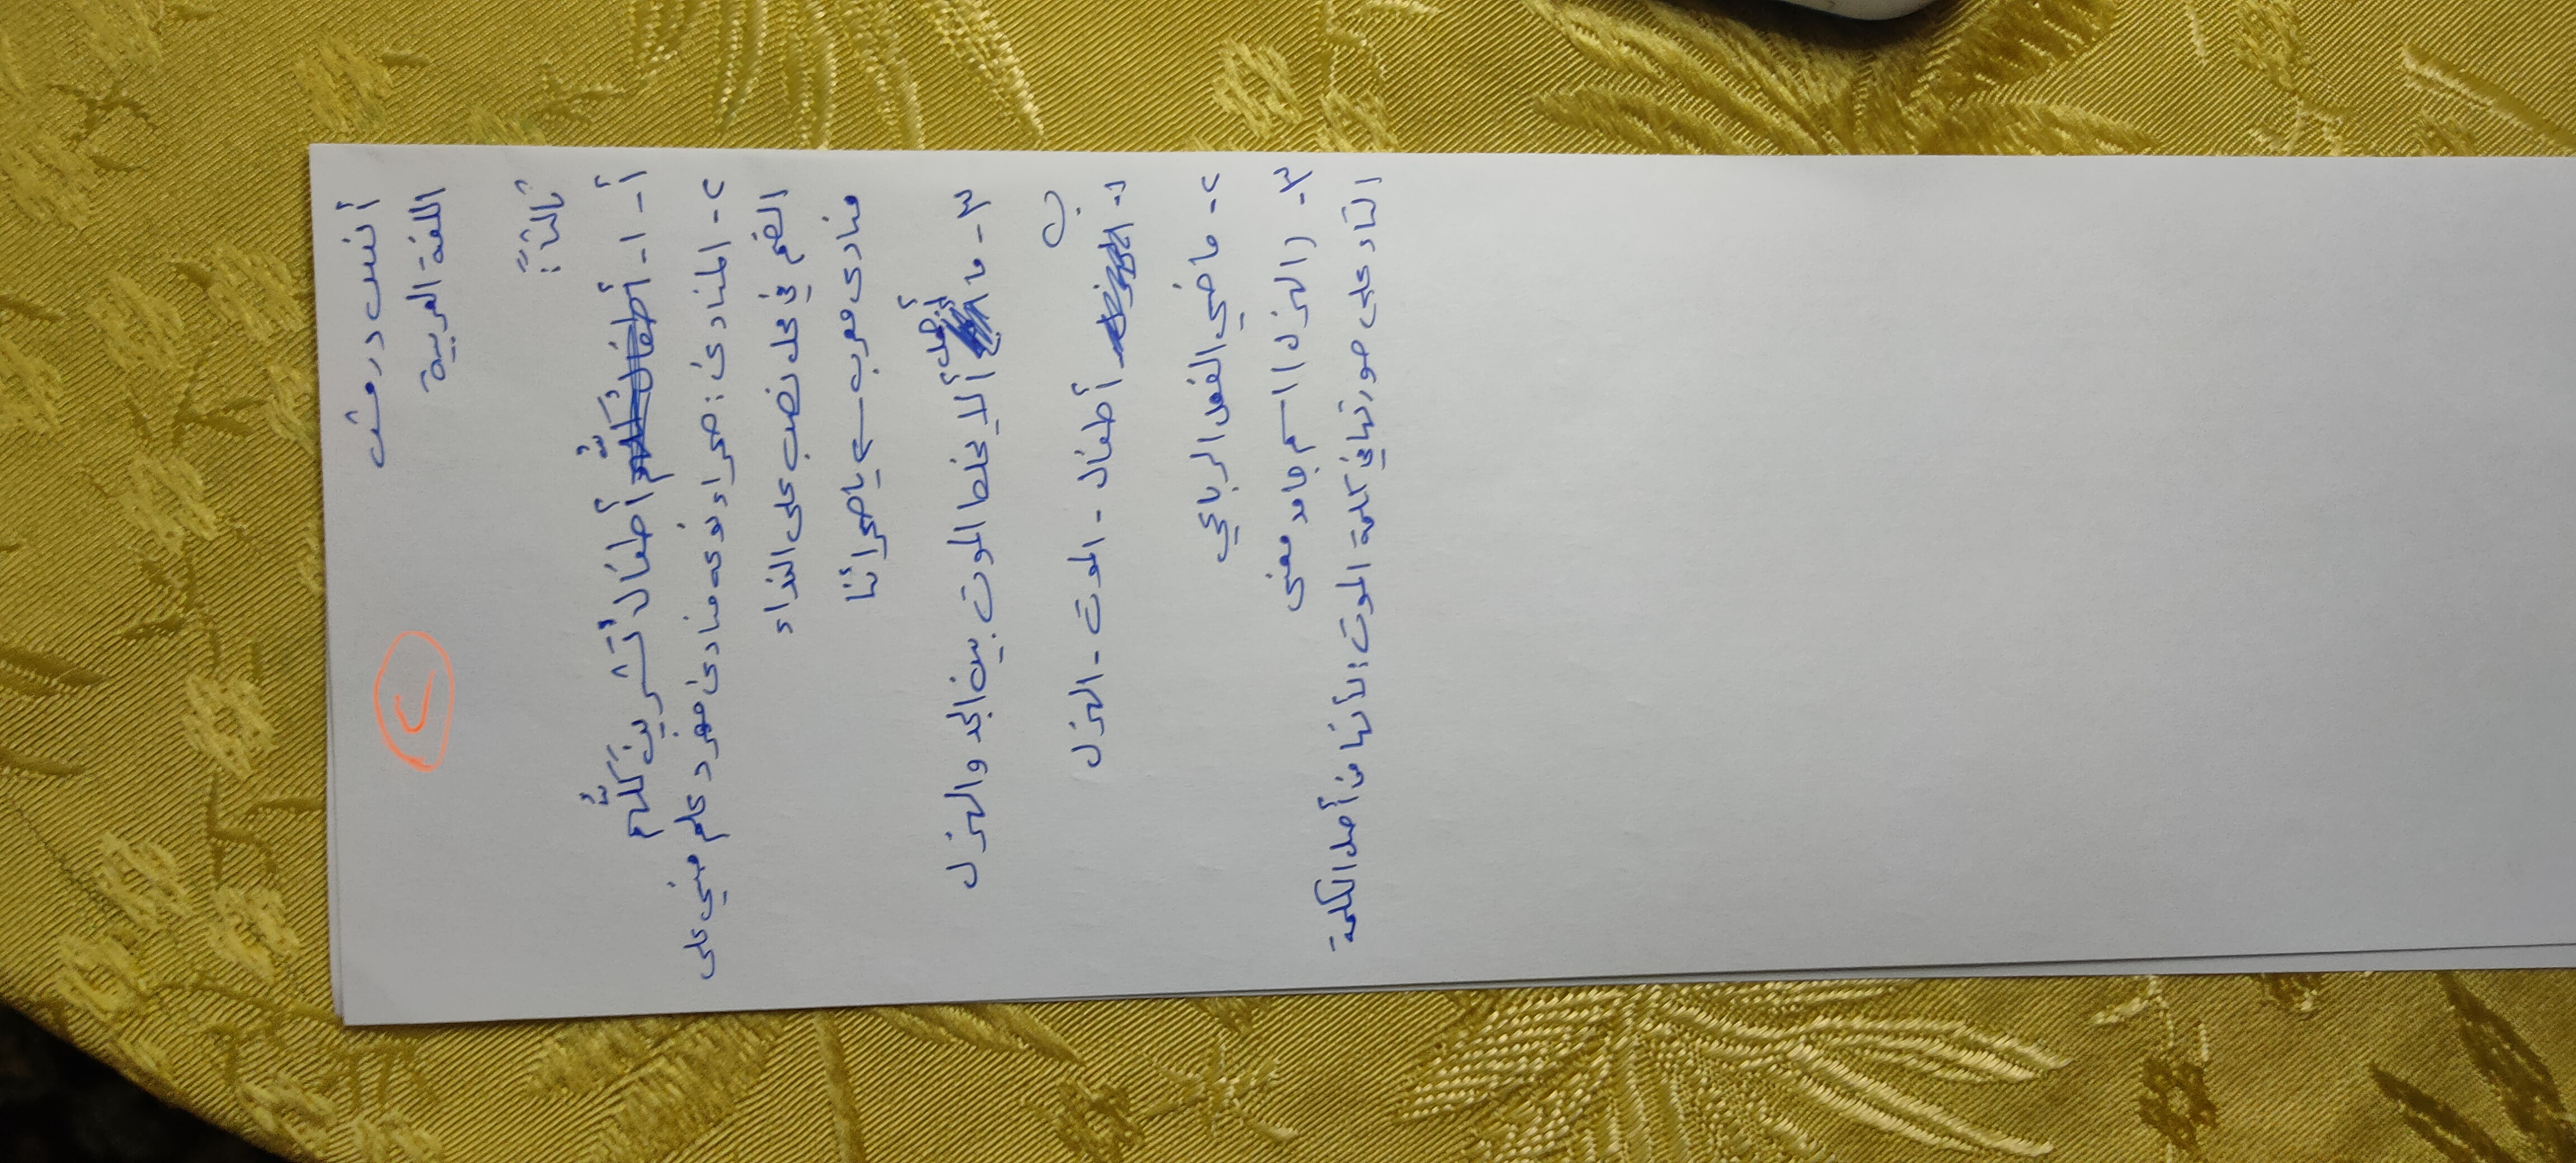 أنس درمش
اللغة العربية
٢
ثالثاً:
أ- ١- أطفال تشرين كلُّهم
٢- المنادى: صحراء نوعه منادى مفرد علم مبني على
الضم في محل نصب على النداء
منادى معرب ← يا صحرائنا
٣- ما أجمل ألا يخلط الموت بين الجد والهزل
ب
١- أطفال - الموت - الهزل
٢- ماضي الفعل الرباعي
٣- (الهزل) اسم جامد معنى
التاء على صورتها في كلمة الموت: لأنها من أصل الكلمة